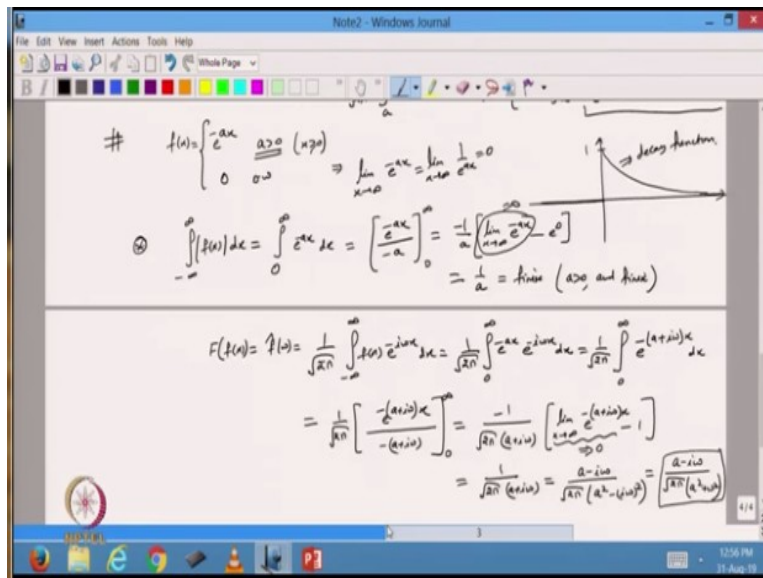 Note2 - Windows Journal
File Edit View Insert Actions Tools Help
Whole Page
# f(x) = { e^{-ax} a>0 (x≥0)
0 ow
⇒ lim_{x→∞} e^{-ax} = lim_{x→∞} 1/e^{ax} = 0
1
⇒ decay function
⊗ ∫_{-∞}^{∞} |f(x)| dx = ∫_0^∞ e^{-ax} dx = [e^{-ax}/-a]_0^∞ = -1/a [lim_{x→∞} e^{-ax} - e^0]
= 1/a = finite (a>0, and fixed)
F(f(x)) = f̂(ω) = 1/√2π ∫_{-∞}^{∞} f(x) e^{-iωx} dx = 1/√2π ∫_0^∞ e^{-ax} e^{-iωx} dx = 1/√2π ∫_0^∞ e^{-(a+iω)x} dx
= 1/√2π [e^{-(a+iω)x}/-(a+iω)]_0^∞ = -1/√2π (a+iω) [lim_{x→∞} e^{-(a+iω)x} - 1]
⇒0
= 1/√2π (a+iω) = a-iω/√2π (a²-(iω)²) = a-iω/√2π (a²+ω²)
4/4
NPTEL
3
12:56 PM
31-Aug-19